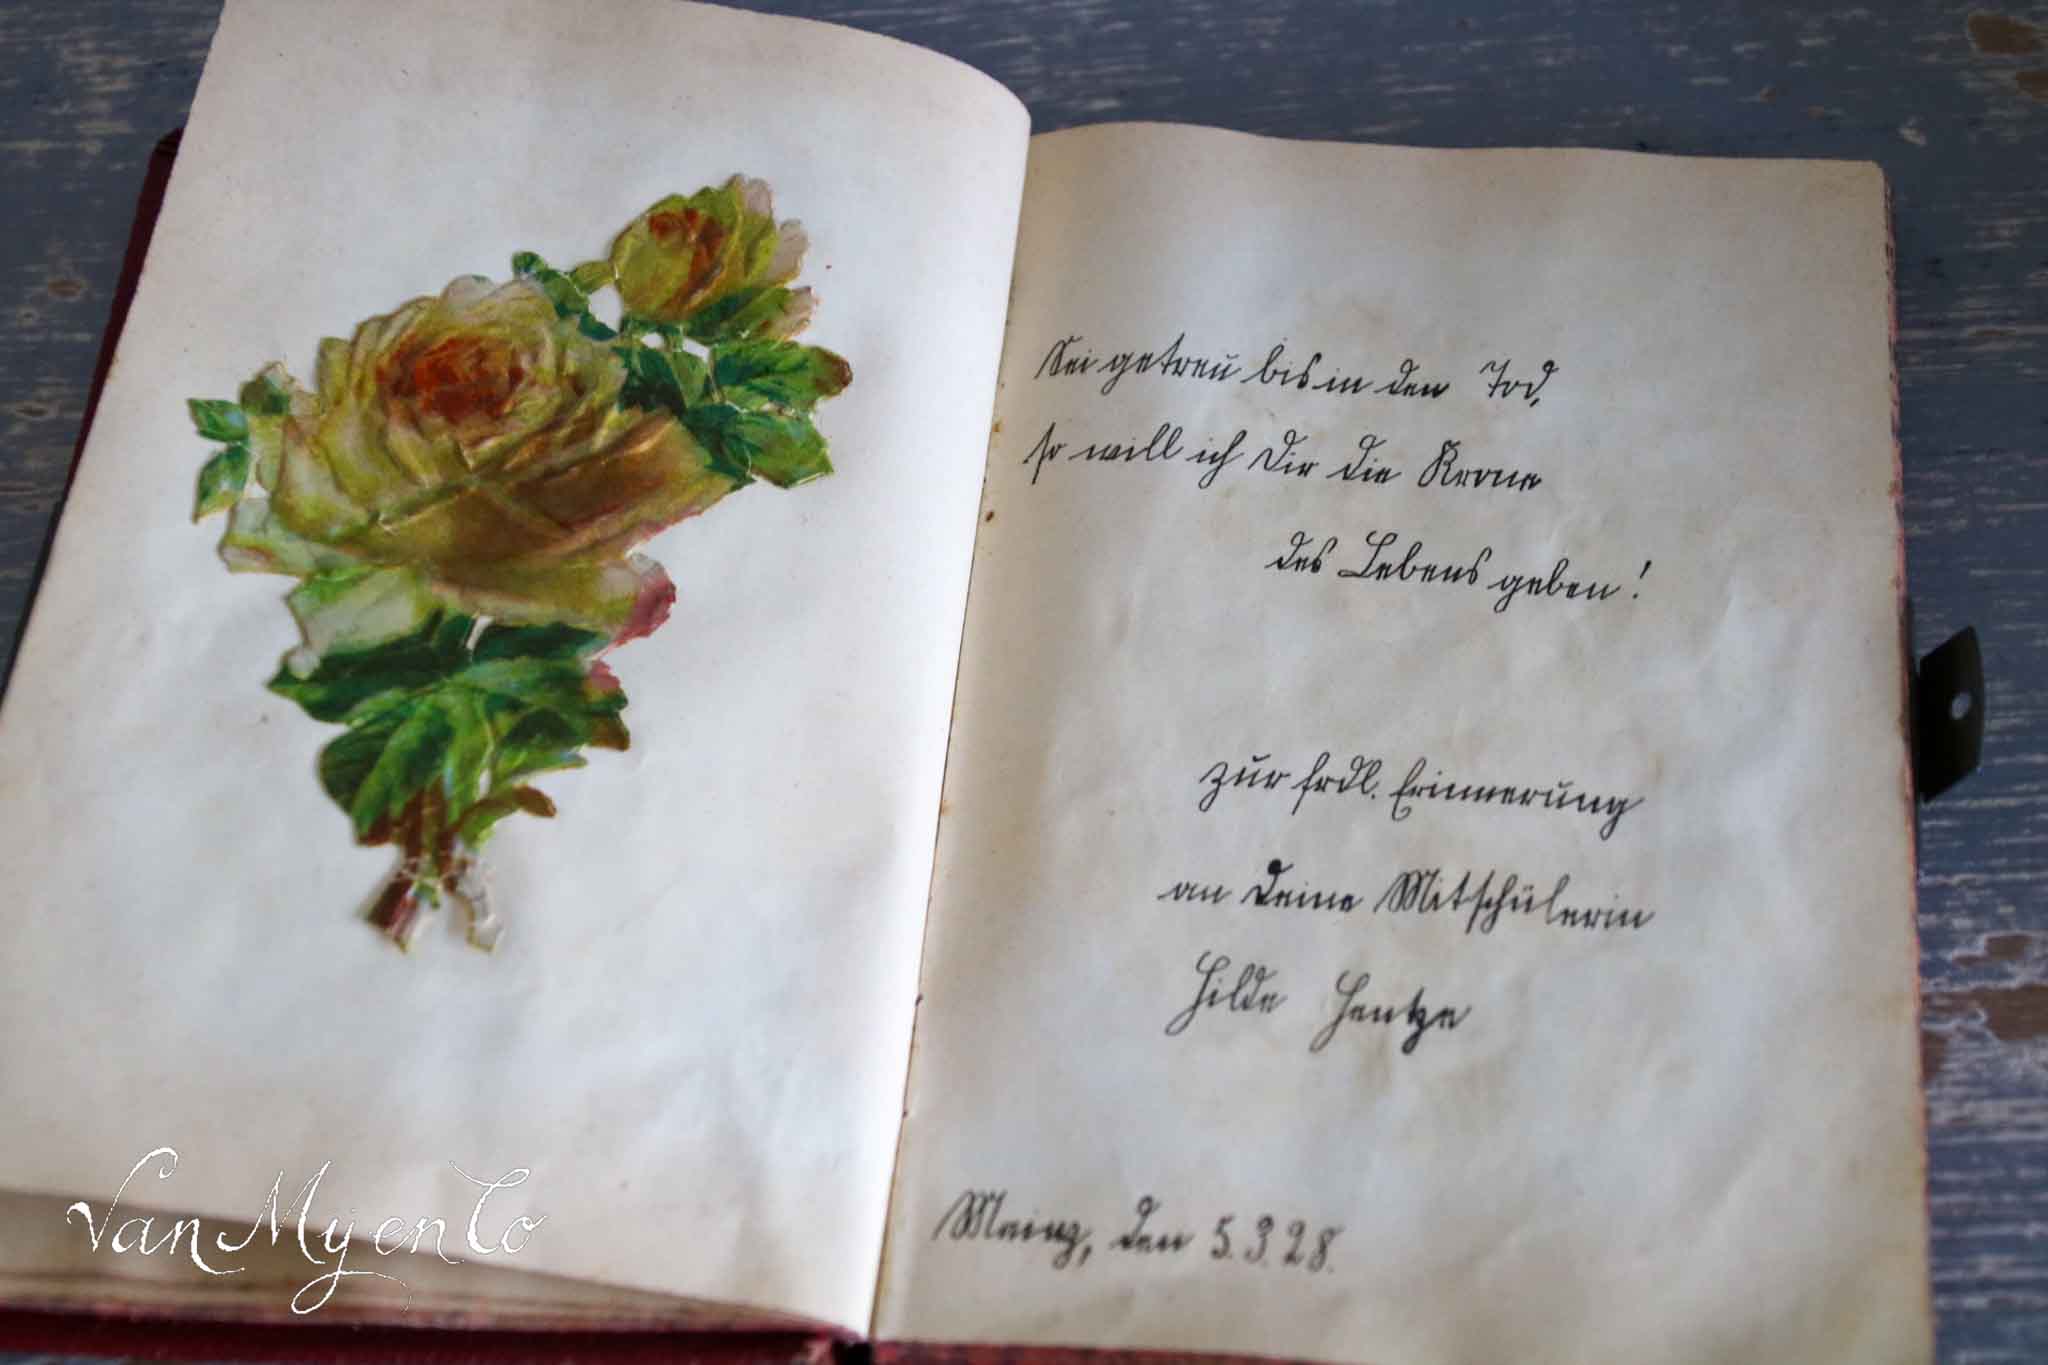 Sei getreu bis in den Tod,
so will ich Dir die Krone
des Lebens geben!
zur frdl. Erinnerung
an Deine Mitschülerin
Hilde Hentze
Mainz, den 5.3.28.
VanMyenCo